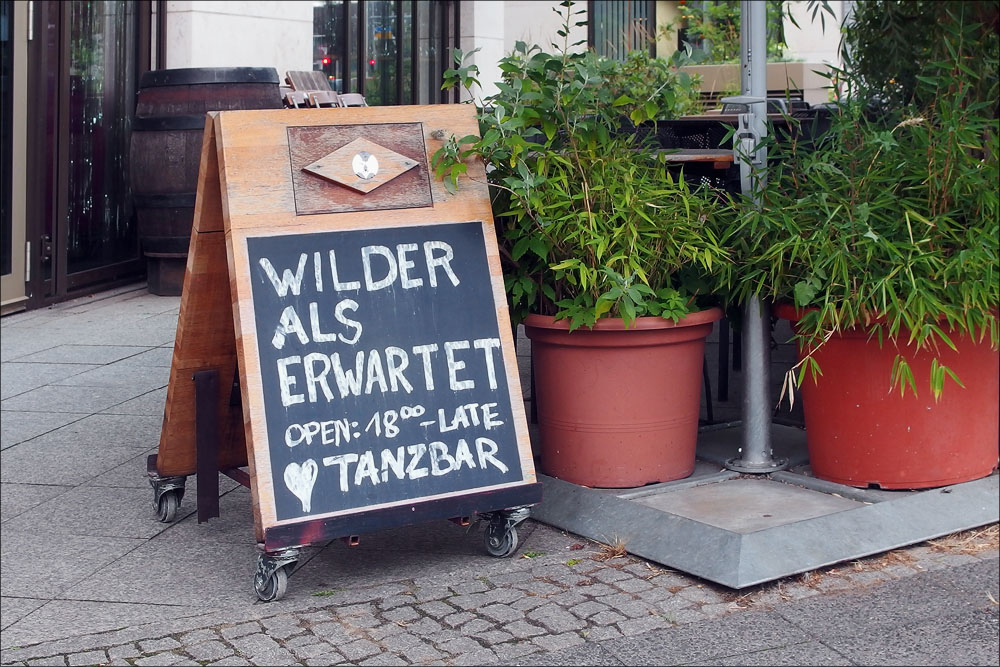 WILDER
ALS
ERWARTET
OPEN: 18⁰⁰-LATE
TANZBAR